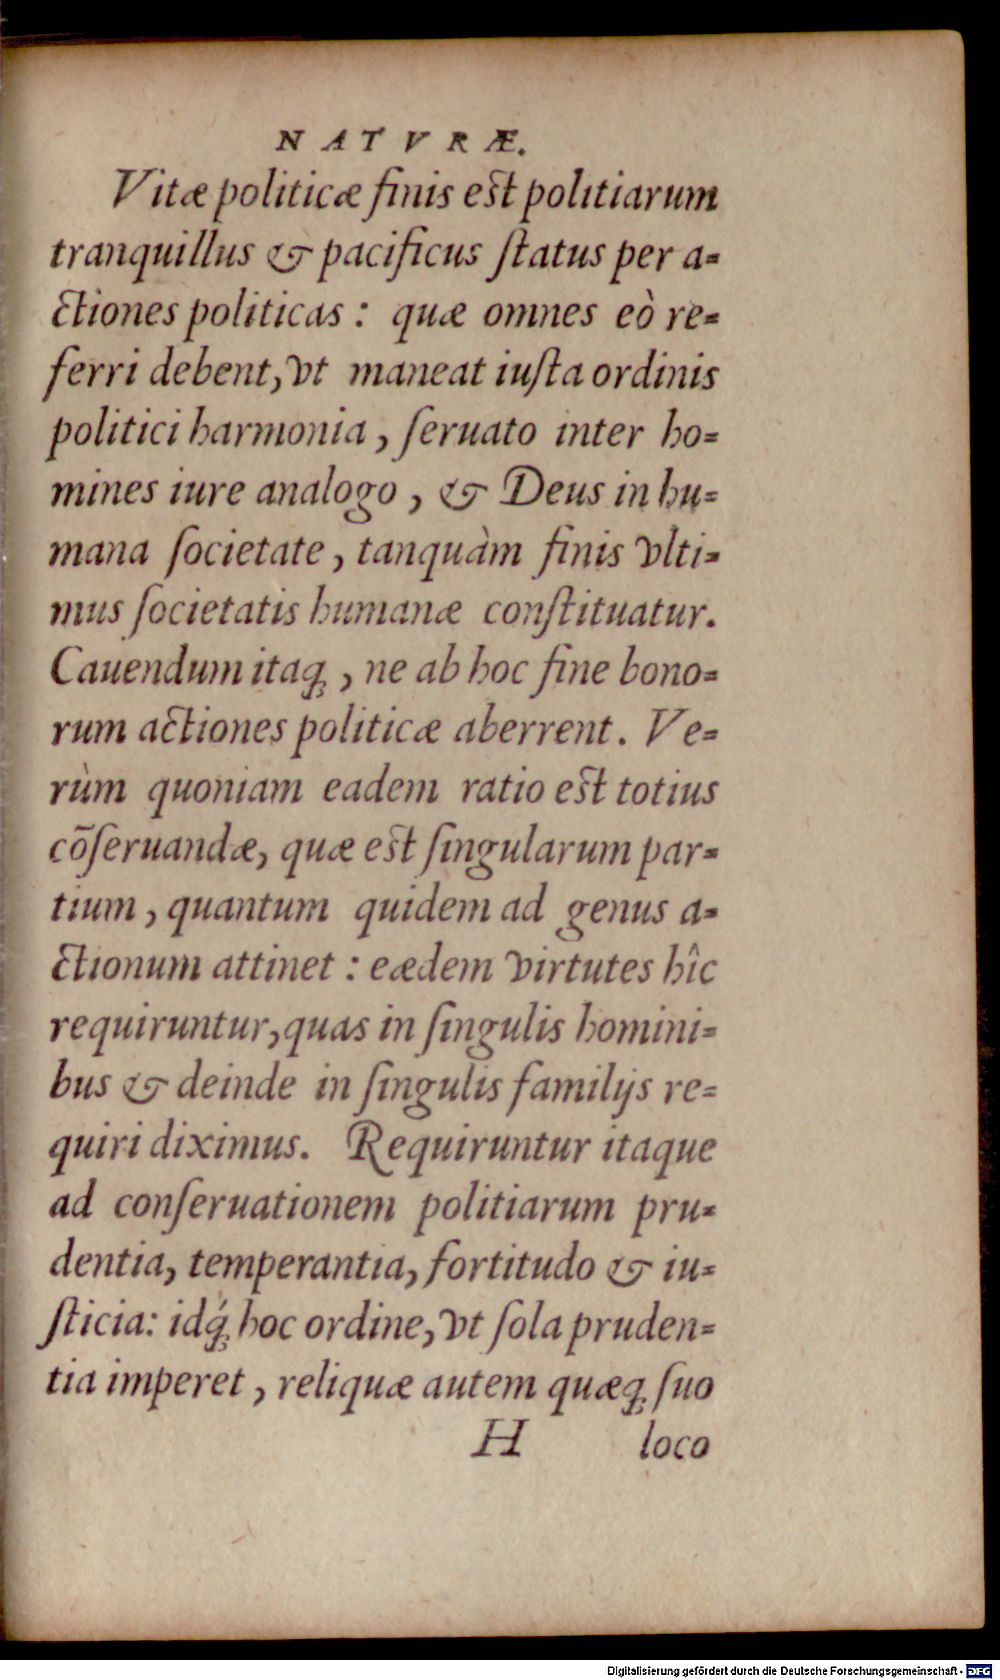 NATVRÆ.
Vitæ politicæ finis est politiarum
tranquillus & pacificus ſtatus per a-
ctiones politicas: quæ omnes eò re-
ferri debent, vt maneat iuſta ordinis
politici harmonia, ſeruato inter ho-
mines iure analogo, & Deus in hu-
mana ſocietate, tanquàm finis vlti-
mus ſocietatis humanæ conſtituatur.
Cauendum itaq̃, ne ab hoc fine bono-
rum actiones politicæ aberrent. Ve-
rùm quoniam eadem ratio est totius
cõſeruandæ, quæ est ſingularum par-
tium, quantum quidem ad genus a-
ctionum attinet: eædem virtutes hîc
requiruntur, quas in ſingulis homini-
bus & deinde in ſingulis familijs re-
quiri diximus. Requiruntur itaque
ad conſeruationem politiarum pru-
dentia, temperantia, fortitudo & iu-
ſticia: idq́; hoc ordine, vt ſola pruden-
tia imperet, reliquæ autem quæq; ſuo
H loco
Digitalisierung gefördert durch die Deutsche Forschungsgemeinschaft - DFG